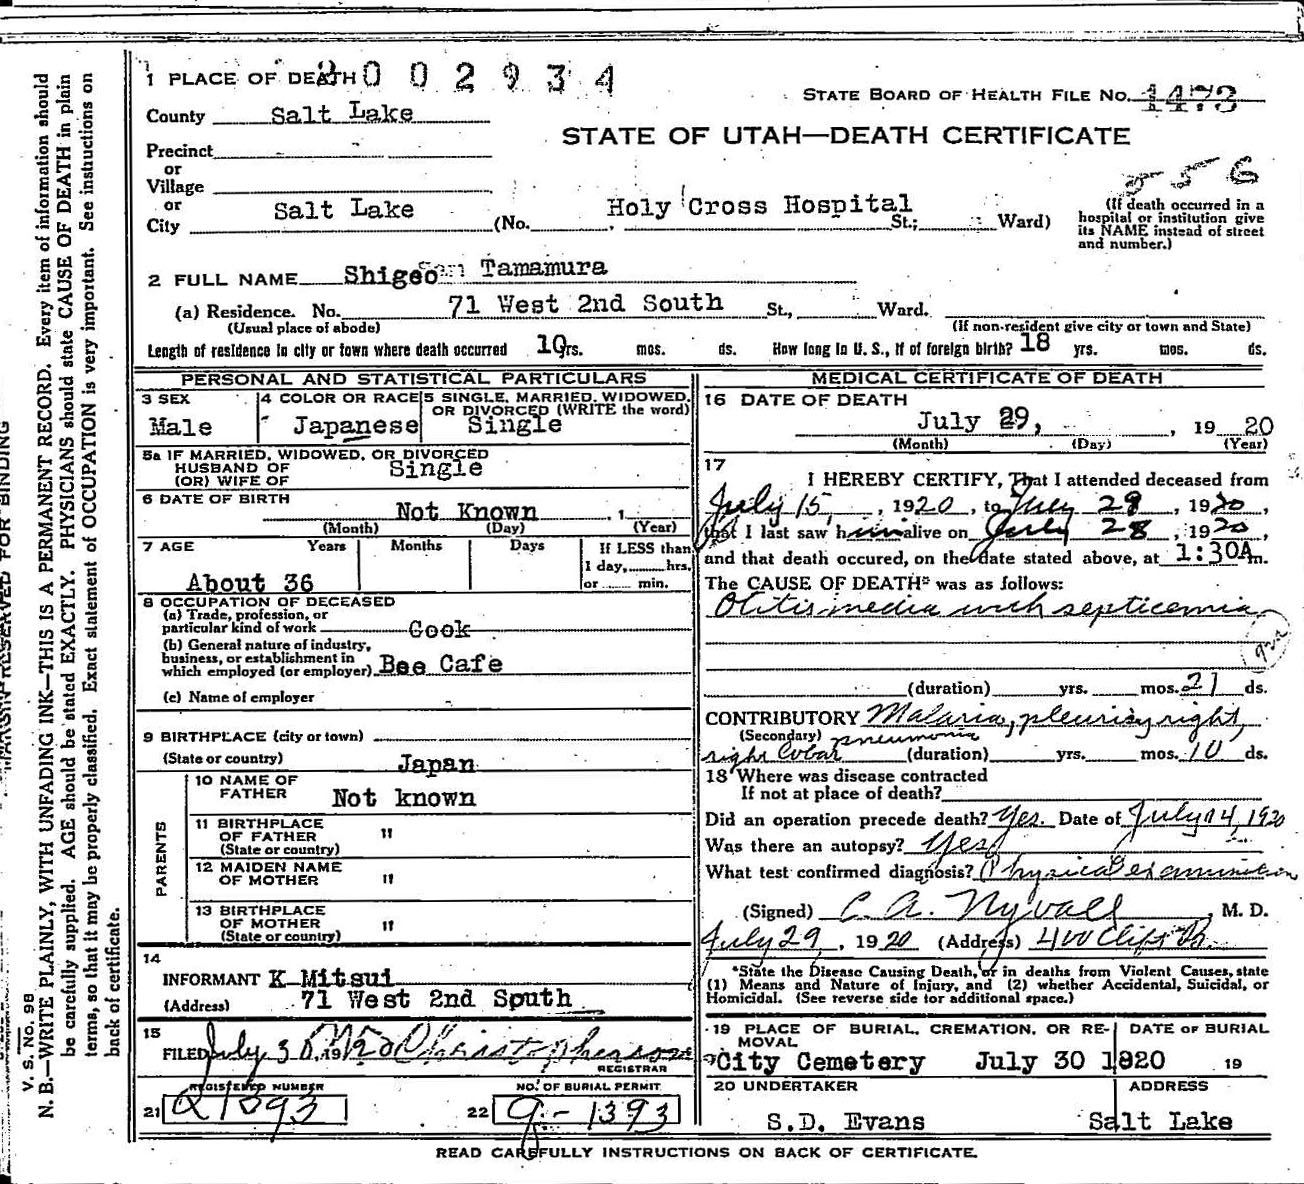 1 PLACE OF DEATH 2 0 0 2 9 3 4
STATE BOARD OF HEALTH FILE NO. 1473
County Salt Lake
STATE OF UTAH—DEATH CERTIFICATE
Precinct
or
Village
556
or
City Salt Lake (No. Holy Cross Hospital St.; Ward)
(If death occurred in a hospital or institution give its NAME instead of street and number.)
2 FULL NAME Shigeo Tamamura
(a) Residence. No. 71 West 2nd South St., Ward.
(Usual place of abode) (If non-resident give city or town and State)
Length of residence in city or town where death occurred 10 yrs. mos. ds. How long in U. S., if of foreign birth? 18 yrs. mos. ds.
PERSONAL AND STATISTICAL PARTICULARS
3 SEX
Male
4 COLOR OR RACE
Japanese
5 SINGLE, MARRIED, WIDOWED, OR DIVORCED (WRITE the word)
Single
5a IF MARRIED, WIDOWED, OR DIVORCED
HUSBAND OF
(OR) WIFE OF Single
6 DATE OF BIRTH
Not Known , 1
(Month) (Day) (Year)
7 AGE Years Months Days If LESS than
1 day, hrs.
or min.
About 36
8 OCCUPATION OF DECEASED
(a) Trade, profession, or
particular kind of work Cook
(b) General nature of industry,
business, or establishment in
which employed (or employer) Bee Cafe
(c) Name of employer
9 BIRTHPLACE (city or town)
(State or country) Japan
PARENTS
10 NAME OF
FATHER Not known
11 BIRTHPLACE
OF FATHER "
(State or country)
12 MAIDEN NAME
OF MOTHER "
13 BIRTHPLACE
OF MOTHER "
(State or country)
14
INFORMANT K Mitsui
(Address) 71 West 2nd South
15
FILED July 30, 1920 Christopherson
REGISTRAR
REGISTERED NUMBER
21 Q1393
NO. OF BURIAL PERMIT
22 9-1393
MEDICAL CERTIFICATE OF DEATH
16 DATE OF DEATH
July 29, , 19 20
(Month) (Day) (Year)
17
I HEREBY CERTIFY, That I attended deceased from
July 15, 1920, to July 28, 1920,
that I last saw him alive on July 28, 1920,
and that death occured, on the date stated above, at 1:30A m.
The CAUSE OF DEATH* was as follows:
Otitis media with septicemia
(duration) yrs. mos. 21 ds.
CONTRIBUTORY Malaria, pleurisy right,
(Secondary) pneumonia
right lobar (duration) yrs. mos. 10 ds.
18 Where was disease contracted
If not at place of death?
Did an operation precede death? Yes. Date of July 14, 1920
Was there an autopsy? Yes
What test confirmed diagnosis? Physical examination
(Signed) C. A. Nyvall, M. D.
July 29, 1920 (Address) 400 Clift
*State the Disease Causing Death, or in deaths from Violent Causes, state
(1) Means and Nature of Injury, and (2) whether Accidental, Suicidal, or
Homicidal. (See reverse side for additional space.)
19 PLACE OF BURIAL, CREMATION, OR RE-
MOVAL
DATE OF BURIAL
City Cemetery July 30 1920 19
20 UNDERTAKER ADDRESS
S.D. Evans Salt Lake
READ CAREFULLY INSTRUCTIONS ON BACK OF CERTIFICATE.
V. S. No. 98
N. B.—WRITE PLAINLY, WITH UNFADING INK—THIS IS A PERMANENT RECORD. Every item of information should
be carefully supplied. AGE should be stated EXACTLY. PHYSICIANS should state CAUSE OF DEATH in plain
terms, so that it may be properly classified. Exact statement of OCCUPATION is very important. See instructions on
back of certificate.
MARGIN RESERVED FOR BINDING